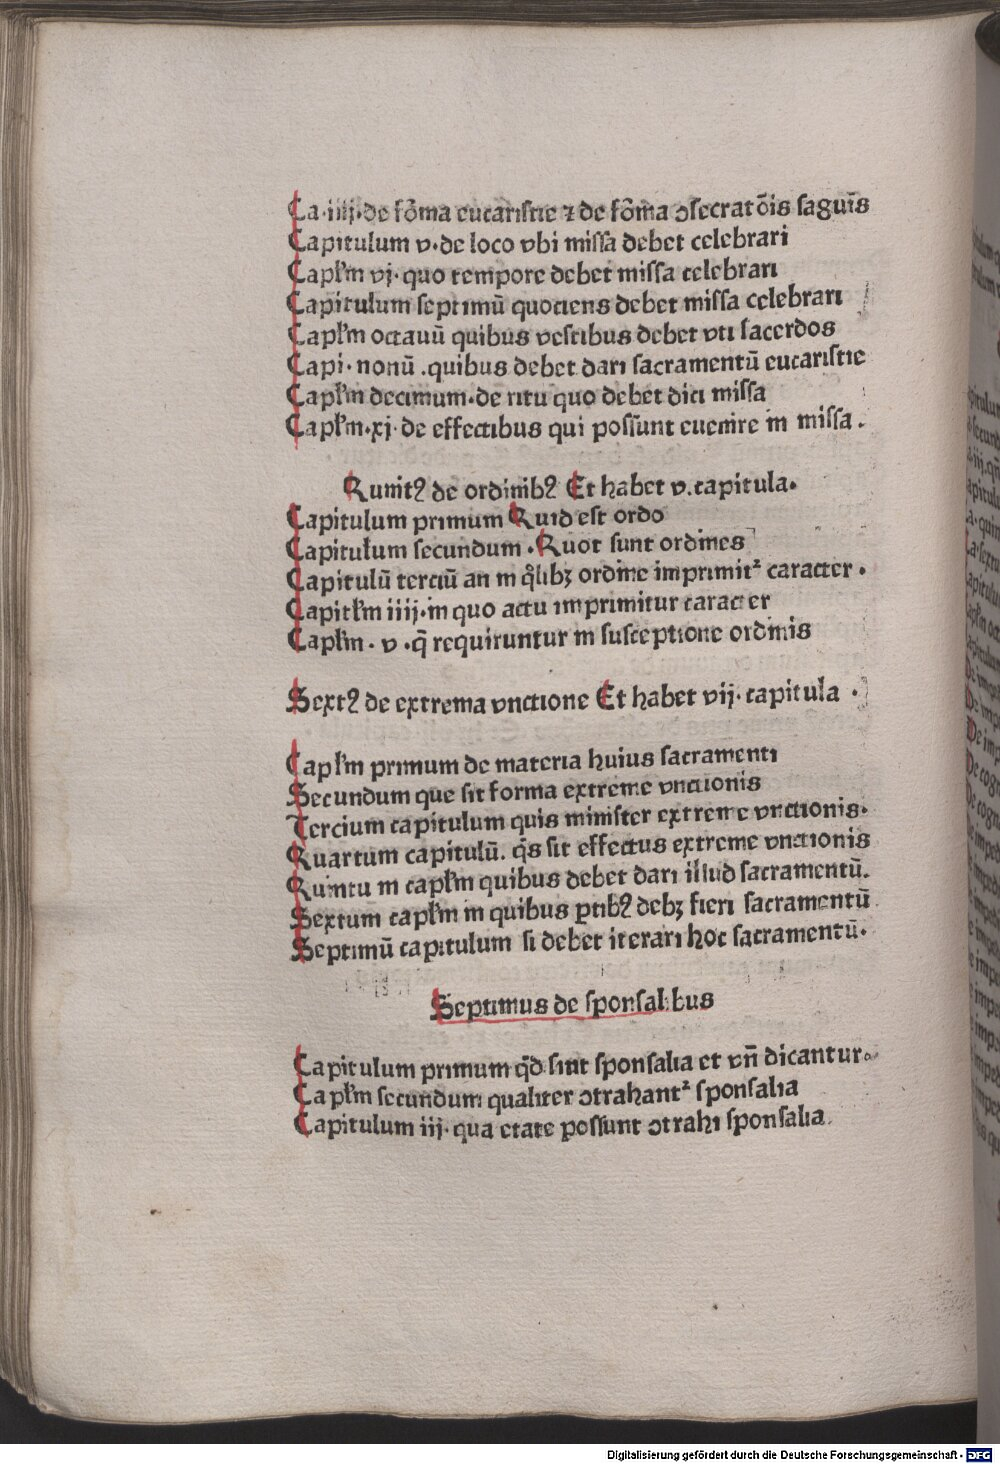 Ca·iiij·de fōma eucaristie ⁊ de fōma ↄsecratōis saguīs
Capitulum v·de loco vbi missa debet celebrari
Capłm vj· quo tempore debet missa celebrari
Capitulum septimū quociens debet missa celebrari
Capłm octauū quibus vestibus debet vti sacerdos
Capi· nonū .quibus debet dari sacramentū eucaristie
Capłm decimum·de ritu quo debet dici missa
Capłm·xj·de effectibus qui possūnt euenire in missa.
Quintꝰ de ordinibꝰ Et habet v.capitula·
Capitulum primum Quid est ordo
Capitulum secundum .Quot sunt ordines
Capitulū terciū an in qͦlibꝫ ordine imprimitᷣ caracter·
Capitłm iiij·in quo actu imprimitur caracter
Capłm·v·q̄ requiruntur in susceptione ordinis
Sextꝰ de extrema vnctione Et habet vij·capitula·
Capłm primum de materia huius sacramenti
Secundum que sit forma extreme vnctionis
Tercium capitulum quis minister extreme vnctionis·
Quartum capitulū. q̄s sit effectus extreme vnctionis
Quintum capłm quibus debet dari illud sacramentū.
Sextum capłm in quibus ꝑtibꝰ debꝫ fieri sacramentū
Septimū capitulum si debet iterari hoc sacramentū·
Septimus de sponsalibus
Capitulum primum qd̄ sint sponsalia et vn̄ dicantur·
Capłm secundum qualiter ↄtrahantᷣ sponsalia
Capitulum iij·qua etate possunt ↄtrahi sponsalia.
Digitalisierung gefördert durch die Deutsche Forschungsgemeinschaft - DFG